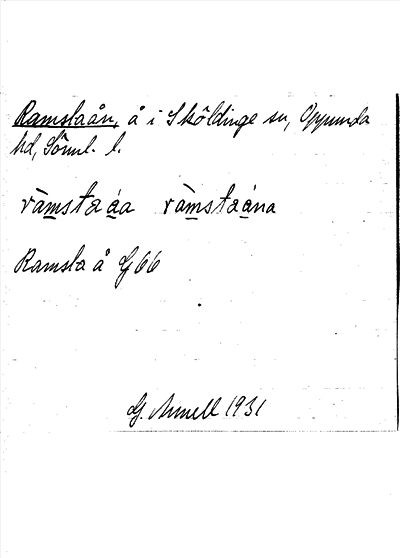 Ramslaån, å i Sköldinge sn, Oppunda
hd, Söml. l.
ràmstaáa ràmstaána
Ramsla å G66
G. 1931